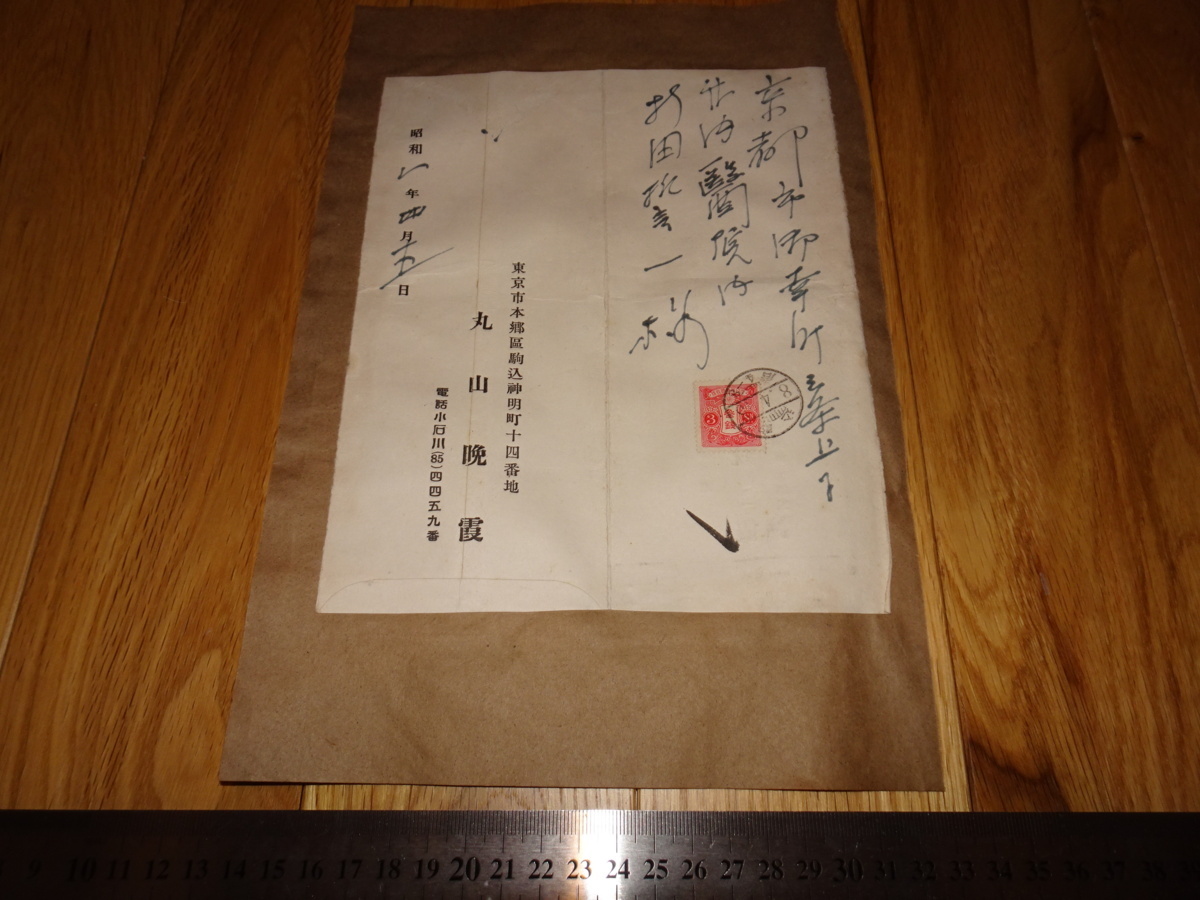 京都市御幸町三条上ル
醫院内
折田 一様
3
東京市本郷區駒込神明町十四番地
丸山晩霞
電話小石川(85)四四五九番
昭和八年四月十五日
9 10 11 12 13 14 15 16 17 18 19 20 21 22 23 24 25 26 27 28 29 30 31 32 33 34 35 36 37 38